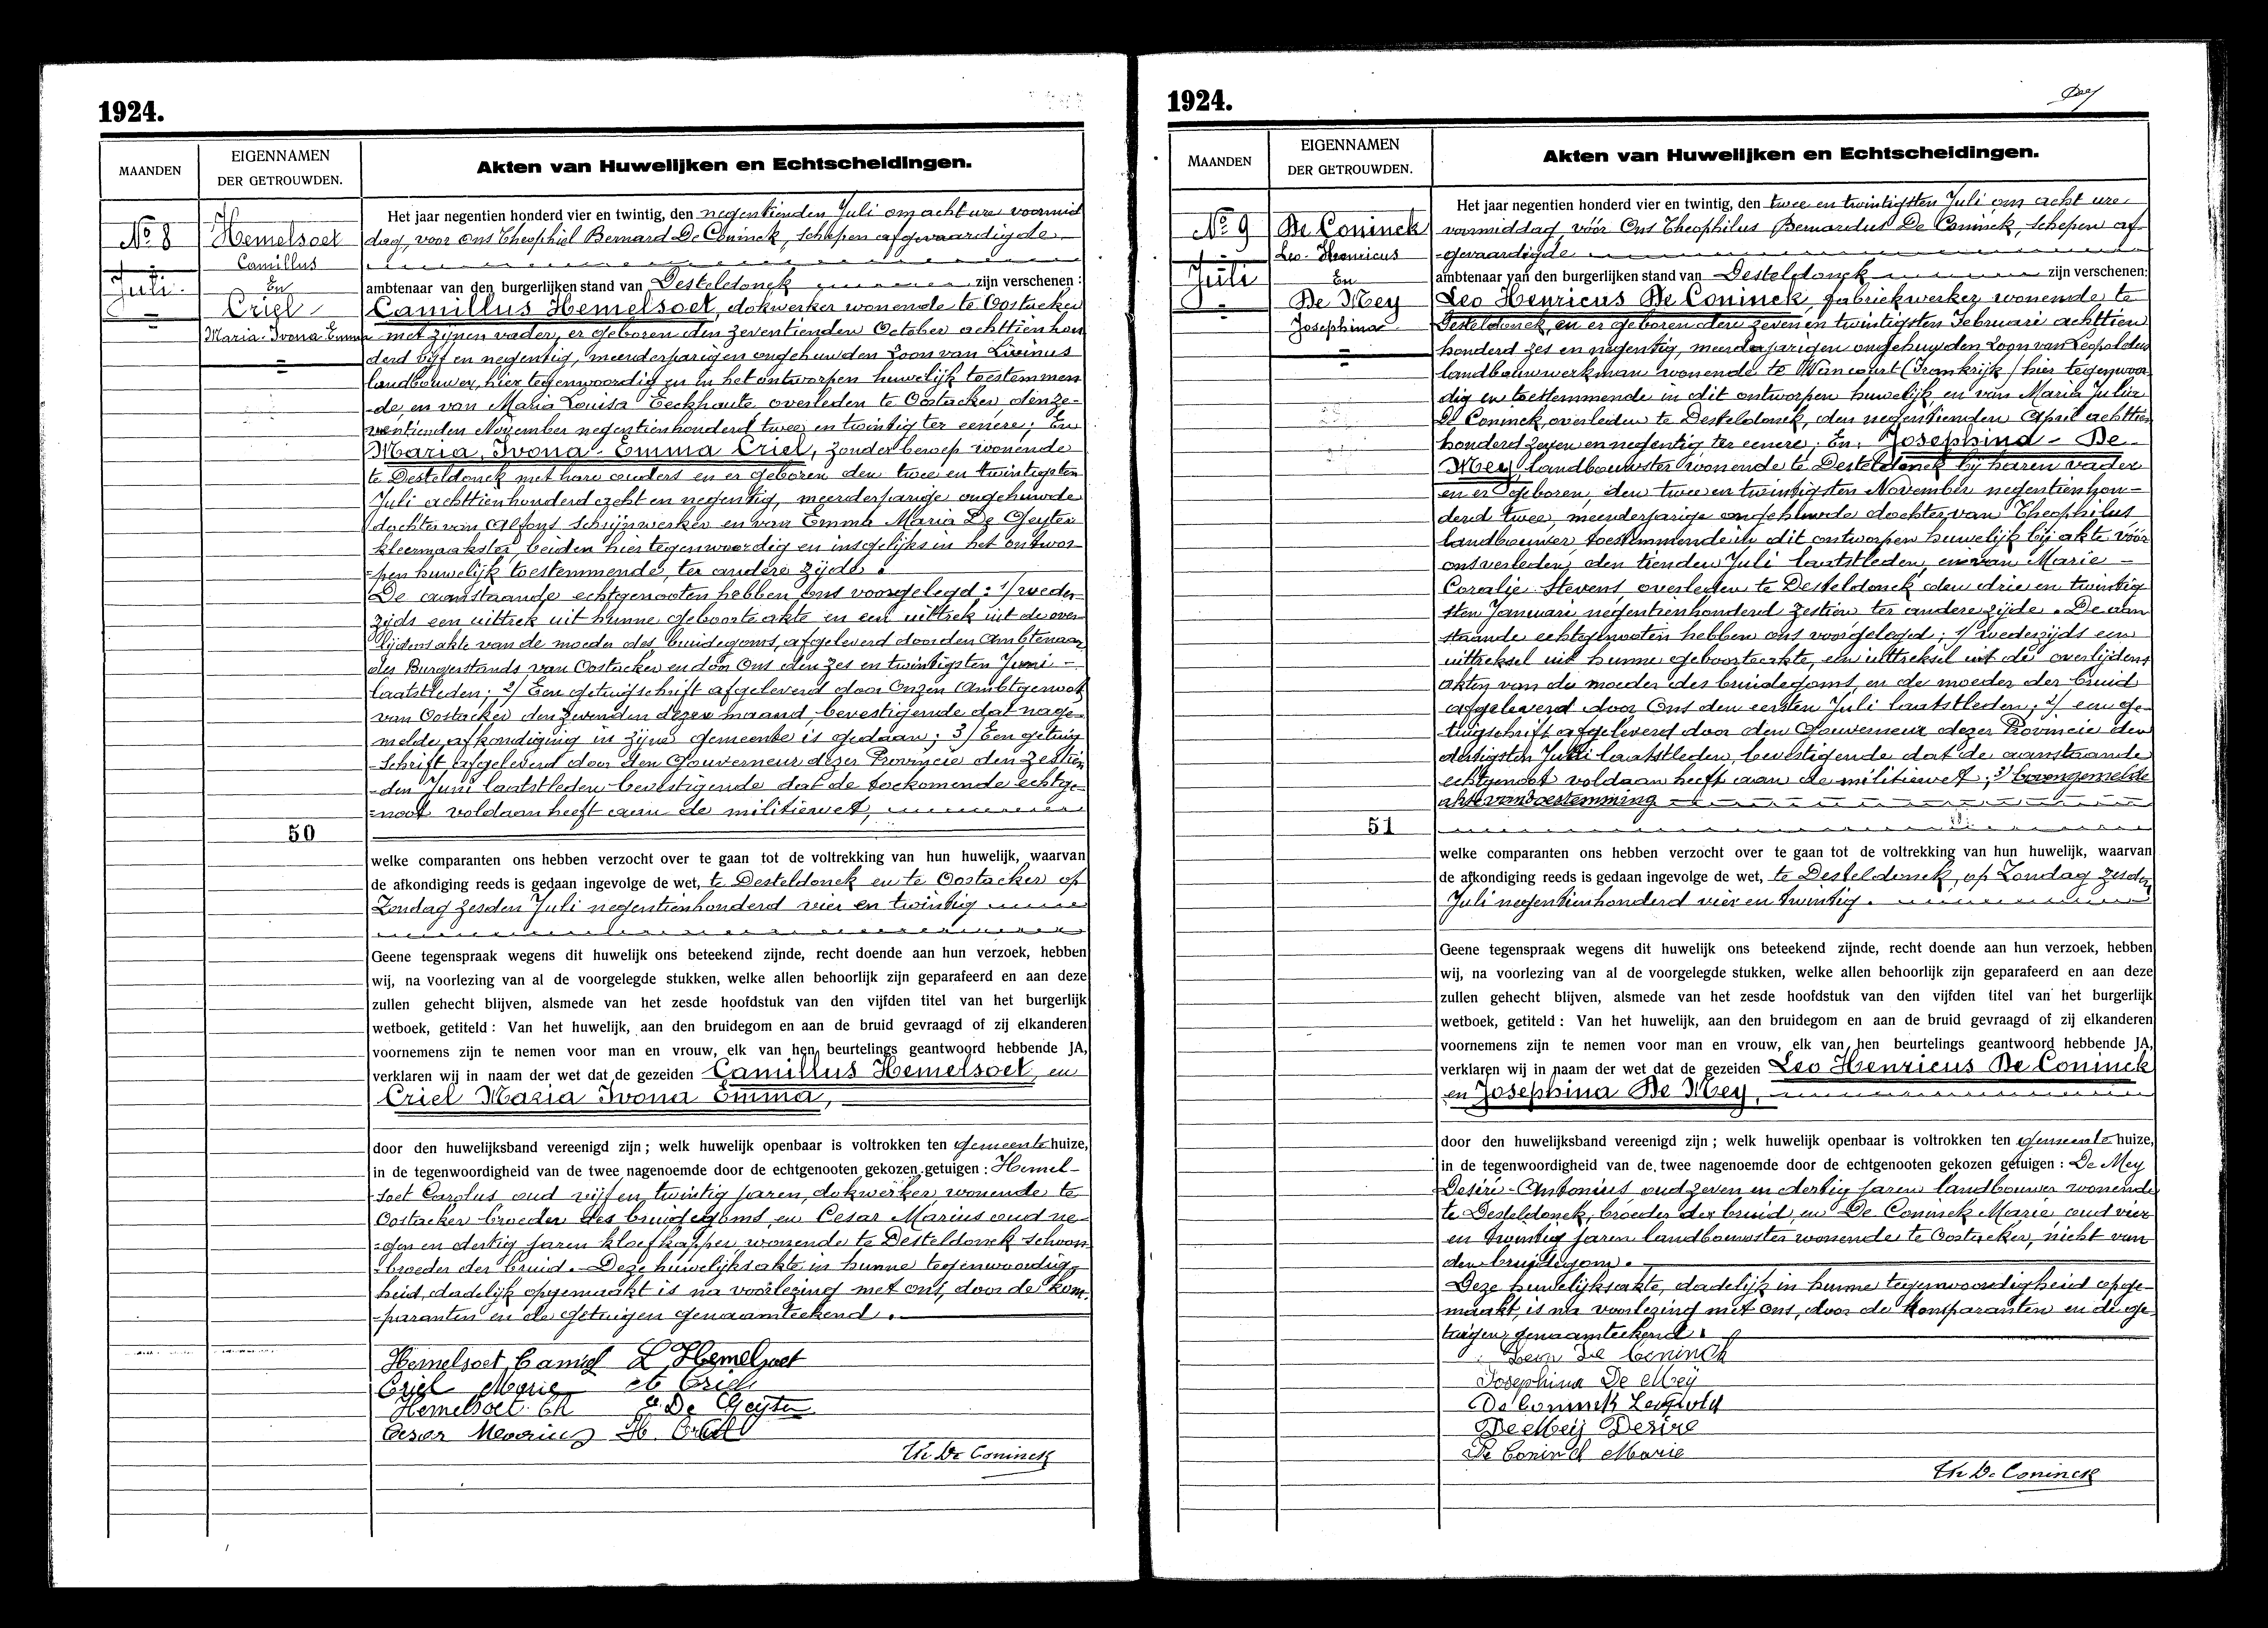 1924.
MAANDEN
EIGENNAMEN
DER GETROUWDEN.
Akten van Huwelijken en Echtscheidingen.
No 8
Juli
Hemelsoet
Camillus
En
Criel
Maria-Ivona-Emma
50
Het jaar negentien honderd vier en twintig, den negentienden Juli om acht ure voormid
dag, voor ons Theophiel Bernard De Coninck, schepen afgevaardigde
ambtenaar van den burgerlijken stand van Desteldonck zijn verschenen:
Camillus Hemelsoet, dokwerker wonende te Oostacker
met zijnen vader, er geboren den zeventienden October achttienhon
derd vijf en negentig, meerderjarigen ongehuwden Zoon van Livinus
landbouwer, hier tegenwoordig en in het ontworpen huwelijk toestemmen
-de, en van Maria Louisa Eeckhaute overleden te Oostacker, den ze-
ventienden November negentienhonderd twee en twintig ter eenere; En
Maria, Ivona-Emma Criel, zonder beroep wonende
te Desteldonck met hare ouders en er geboren den twee en twintigsten
Juli achttienhonderd acht en negentig, meerderjarige ongehuwde
dochter van Alfons schrijnwerker en van Emma Maria De Geyter
kleermaakster beiden hier tegenwoordig en insgelijks in het ontwor-
-pen huwelijk toestemmende, ter andere zijde.
De aanstaande echtgenooten hebben ons voorgelegd: 1/ weder-
zijds een uittrek uit hunne geboorteakte en een uittrek uit de over-
lijdens akte van de moeder des bruidegoms, afgeleverd door den Ambtenaar
des Burgerstands van Oostacker en door Ons den zes en twintigsten Juni -
laatstleden; 2/ Een getuigschrift afgeleverd door Onzen Ambtgenoot
van Oostacker den zevenden dezer maand, bevestigende dat nage-
melde afkondiging in zijne gemeente is gedaan; 3/ Een getuig
-schrift afgeleverd door den Gouverneur dezer Provincie den zestien
-den Juni laatstleden bevestigende dat de toekomende echtge-
-noot voldaan heeft aan de militiewet,
welke comparanten ons hebben verzocht over te gaan tot de voltrekking van hun huwelijk, waarvan
de afkondiging reeds is gedaan ingevolge de wet, te Desteldonck en te Oostacker op
Zondag zesden Juli negentienhonderd vier en twintig
Geene tegenspraak wegens dit huwelijk ons beteekend zijnde, recht doende aan hun verzoek, hebben
wij, na voorlezing van al de voorgelegde stukken, welke allen behoorlijk zijn geparafeerd en aan deze
zullen gehecht blijven, alsmede van het zesde hoofdstuk van den vijfden titel van het burgerlijk
wetboek, getiteld: Van het huwelijk, aan den bruidegom en aan de bruid gevraagd of zij elkanderen
voornemens zijn te nemen voor man en vrouw, elk van hen beurtelings geantwoord hebbende JA,
verklaren wij in naam der wet dat de gezeiden Camillus Hemelsoet, en
Criel Maria Ivona Emma,
door den huwelijksband vereenigd zijn; welk huwelijk openbaar is voltrokken ten gemeente huize,
in de tegenwoordigheid van de twee nagenoemde door de echtgenooten gekozen getuigen: Hemel-
soet Carolus oud vijf en twintig jaren, dokwerker wonende te
Oostacker broeder des bruidegoms, en Cesar Marius oud ne-
-gen en dertig jaren kloefkapper wonende te Desteldonck schoon-
-broeder der bruid. Deze huwelijksakte in hunne tegenwoordig-
heid, dadelijk opgemaakt is na voorlezing met ons, door de kom-
-paranten en de getuigen genaamteekend.
Hemelsoet Camiel L. Hemelsoet
Criel Marie A Criel
Hemelsoet Ch E. De Geyter
Cesar Mearius H. Criel
Th. De Coninck
1924.
MAANDEN
EIGENNAMEN
DER GETROUWDEN.
Akten van Huwelijken en Echtscheidingen.
No 9
Juli
De Coninck
Leo-Henricus
En
De Mey
Josephina
51
Het jaar negentien honderd vier en twintig, den twee en twintigsten Juli om acht ure
voormiddag, vóór Ons Theophilus Bernardus De Coninck, schepen af-
-gevaardigde
ambtenaar van den burgerlijken stand van Desteldonck zijn verschenen:
Leo Henricus De Coninck, fabriekwerker wonende te
Desteldonck, en er geboren den zeven en twintigsten Februari achttien
honderd zes en negentig, meerderjarigen ongehuwden Zoon van Leopoldus
landbouwwerkman wonende te Wancourt (Frankrijk) hier tegenwoor
dig en toestemmende in dit ontworpen huwelijk, en van Maria Julie
De Coninck, overleden te Desteldonck, den negentienden April achttien
honderd zeven en negentig ter eenere; En, Josephina - De
Mey, landbouwster wonende te Desteldonck bij haren vader
en er geboren, den twee en twintigsten November negentienhon-
derd twee, meerderjarige ongehuwde dochter van Theophilus
landbouwer, toestemmende in dit ontworpen huwelijk bij akte vóór
ons verleden, den tienden Juli laatstleden, en van Marie -
Coralie Stevens, overleden te Desteldonck den drie en twintig
sten Januari negentienhonderd zestien ter andere zijde. De aan
staande echtgenooten hebben ons voorgelegd; 1/ wederzijds een
uittreksel uit hunne geboorteakte, een uittreksel uit de overlijdens
akten van de moeder des bruidegoms, en de moeder der bruid
afgeleverd door Ons den eersten Juli laatstleden; 2/ een ge-
tuigschrift afgeleverd door den Gouverneur dezer Provincie den
dertigsten Juni laatstleden, bevestigende dat de aanstaande
echtgenoot voldaan heeft aan de militiewet; 3/ bovengemelde
akte van toestemming
welke comparanten ons hebben verzocht over te gaan tot de voltrekking van hun huwelijk, waarvan
de afkondiging reeds is gedaan ingevolge de wet, te Desteldonck, op Zondag zesden
Juli negentienhonderd vier en twintig.
Geene tegenspraak wegens dit huwelijk ons beteekend zijnde, recht doende aan hun verzoek, hebben
wij, na voorlezing van al de voorgelegde stukken, welke allen behoorlijk zijn geparafeerd en aan deze
zullen gehecht blijven, alsmede van het zesde hoofdstuk van den vijfden titel van het burgerlijk
wetboek, getiteld: Van het huwelijk, aan den bruidegom en aan de bruid gevraagd of zij elkanderen
voornemens zijn te nemen voor man en vrouw, elk van hen beurtelings geantwoord hebbende JA,
verklaren wij in naam der wet dat de gezeiden Leo Henricus De Coninck
en Josephina De Mey,
door den huwelijksband vereenigd zijn; welk huwelijk openbaar is voltrokken ten gemeente huize,
in de tegenwoordigheid van de twee nagenoemde door de echtgenooten gekozen getuigen: De Mey
Desiré-Antonius oud zeven en dertig jaren landbouwer wonende
te Desteldonck, broeder der bruid, en De Coninck Marie oud vier
en twintig jaren landbouwster wonende te Oostacker, nicht van
den bruidegom.
Deze huwelijksakte, dadelijk in hunne tegenwoordigheid opge-
maakt, is na voorlezing met ons, door de komparanten en de ge-
tuigen genaamteekend.
Leon De Coninck
Josephina De Meÿ
De Coninck Leopold
De Meij Desire
De Coninck Marie
Th De Coninck